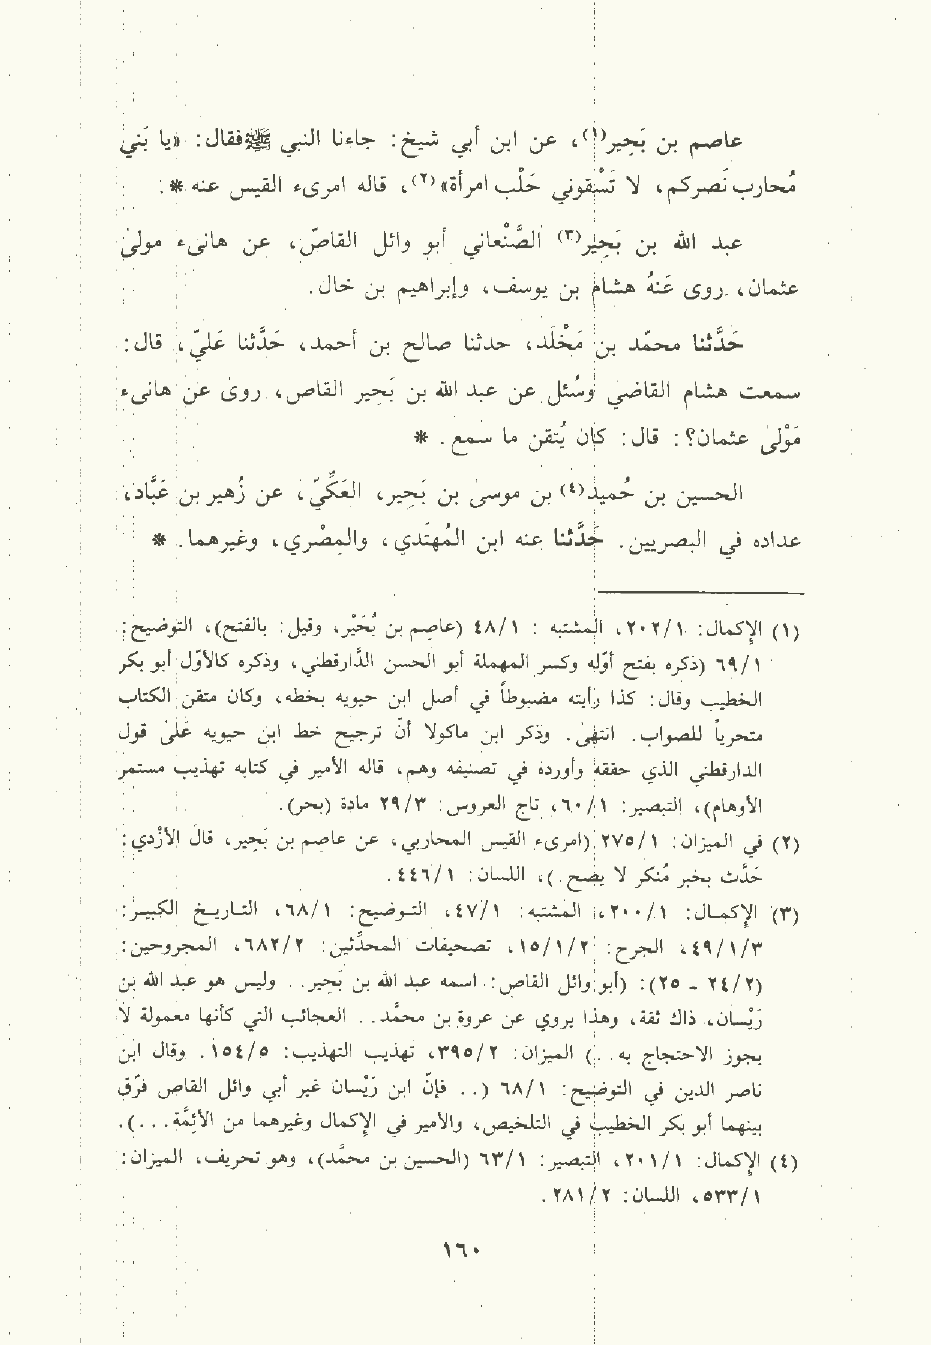 عاصم بن بَحِير(١)، عن ابن أبي شيخ: جاءنا النبي ﷺ فقال: «يا بَني
مُحارب نَصركم، لا تَسْقوني حَلْب امرأة»(٢)، قاله امرىء القيس عنه *.
عبد الله بن بَحِير(٣) الصَّنْعاني أبو وائل القاصّ، عن هانىء مولىٰ
عثمان، روى عَنهُ هشام بن يوسف، وإبراهيم بن خالد.
حَدَّثنا محمّد بن مَخْلَد، حدثنا صالح بن أحمد، حَدَّثنا عَليّ، قال:
سمعت هشام القاضي وسُئل عن عبد الله بن بَحِير القاص، روىٰ عن هانىء
مَوْلى عثمان؟: قال: كان يُتقن ما سمع. *
الحسين بن حُميد(٤) بن موسىٰ بن بَحِير، العَكّيّ، عن زُهير بن عَبَّاد،
عداده في البصريين. حَدَّثنا عنه ابن المُهتَدي، والمِصْري، وغيرهما. *
(١) الإكمال: ٢٠٢/١، المشتبه : ٤٨/١ (عاصم بن بُحَيْر، وقيل: بالفتح)، التوضيح:
٦٩/١ (ذكره بفتح أوّله وكسر المهملة أبو الحسن الدارقطني، وذكره كالأوّل أبو بكر
الخطيب وقال: كذا رأيته مضبوطاً في أصل ابن حيويه بخطه، وكان متقن الكتاب
متحرياً للصواب. انتهىٰ. وذكر ابن ماكولا أنّ ترجيح خط ابن حيويه عَلىٰ قول
الدارقطني الذي حققه وأورده في تصنيفه وهم، قاله الأمير في كتابه تهذيب مستمر
الأوهام)، التبصير: ٦٠/١، تاج العروس: ٢٩/٣ مادة (بحر).
(٢) في الميزان: ٢٧٥/١ (امرىء القيس المحاربي، عن عاصم بن بَحِير، قال الأزْدي:
حَدَّث بخبر مُنكر لا يصح.)، اللسان: ٤٤٦/١.
(٣) الإكمال: ٢٠٠/١، المشتبه: ٤٧/١، التوضيح: ٦٨/١، التاريخ الكبير:
٤٩/١/٣، الجرح: ١٥/١/٢، تصحيفات المحدّثين: ٦٨٢/٢، المجروحين:
(٢٤/٢ - ٢٥): (أبو وائل القاص: اسمه عبد الله بن بَحِير.. وليس هو عبد الله بن
رَيْسان، ذاك ثقة، وهذا يروي عن عروة بن محمّد.. العجائب التي كأنها معمولة لا
يجوز الاحتجاج به..)، الميزان: ٣٩٥/٢، تهذيب التهذيب: ١٥٤/٥. وقال ابن
ناصر الدين في التوضيح: ٦٨/١ (.. فإنّ ابن رَيْسان غير أبي وائل القاص فرّق
بينهما أبو بكر الخطيب في التلخيص، والأمير في الإكمال وغيرهما من الأئمّة...).
(٤) الإكمال: ٢٠١/١، التبصير: ٦٣/١ (الحسين بن محمّد)، وهو تحريف، الميزان:
٥٣٣/١، اللسان: ٢٨١/٢.
١٦٠